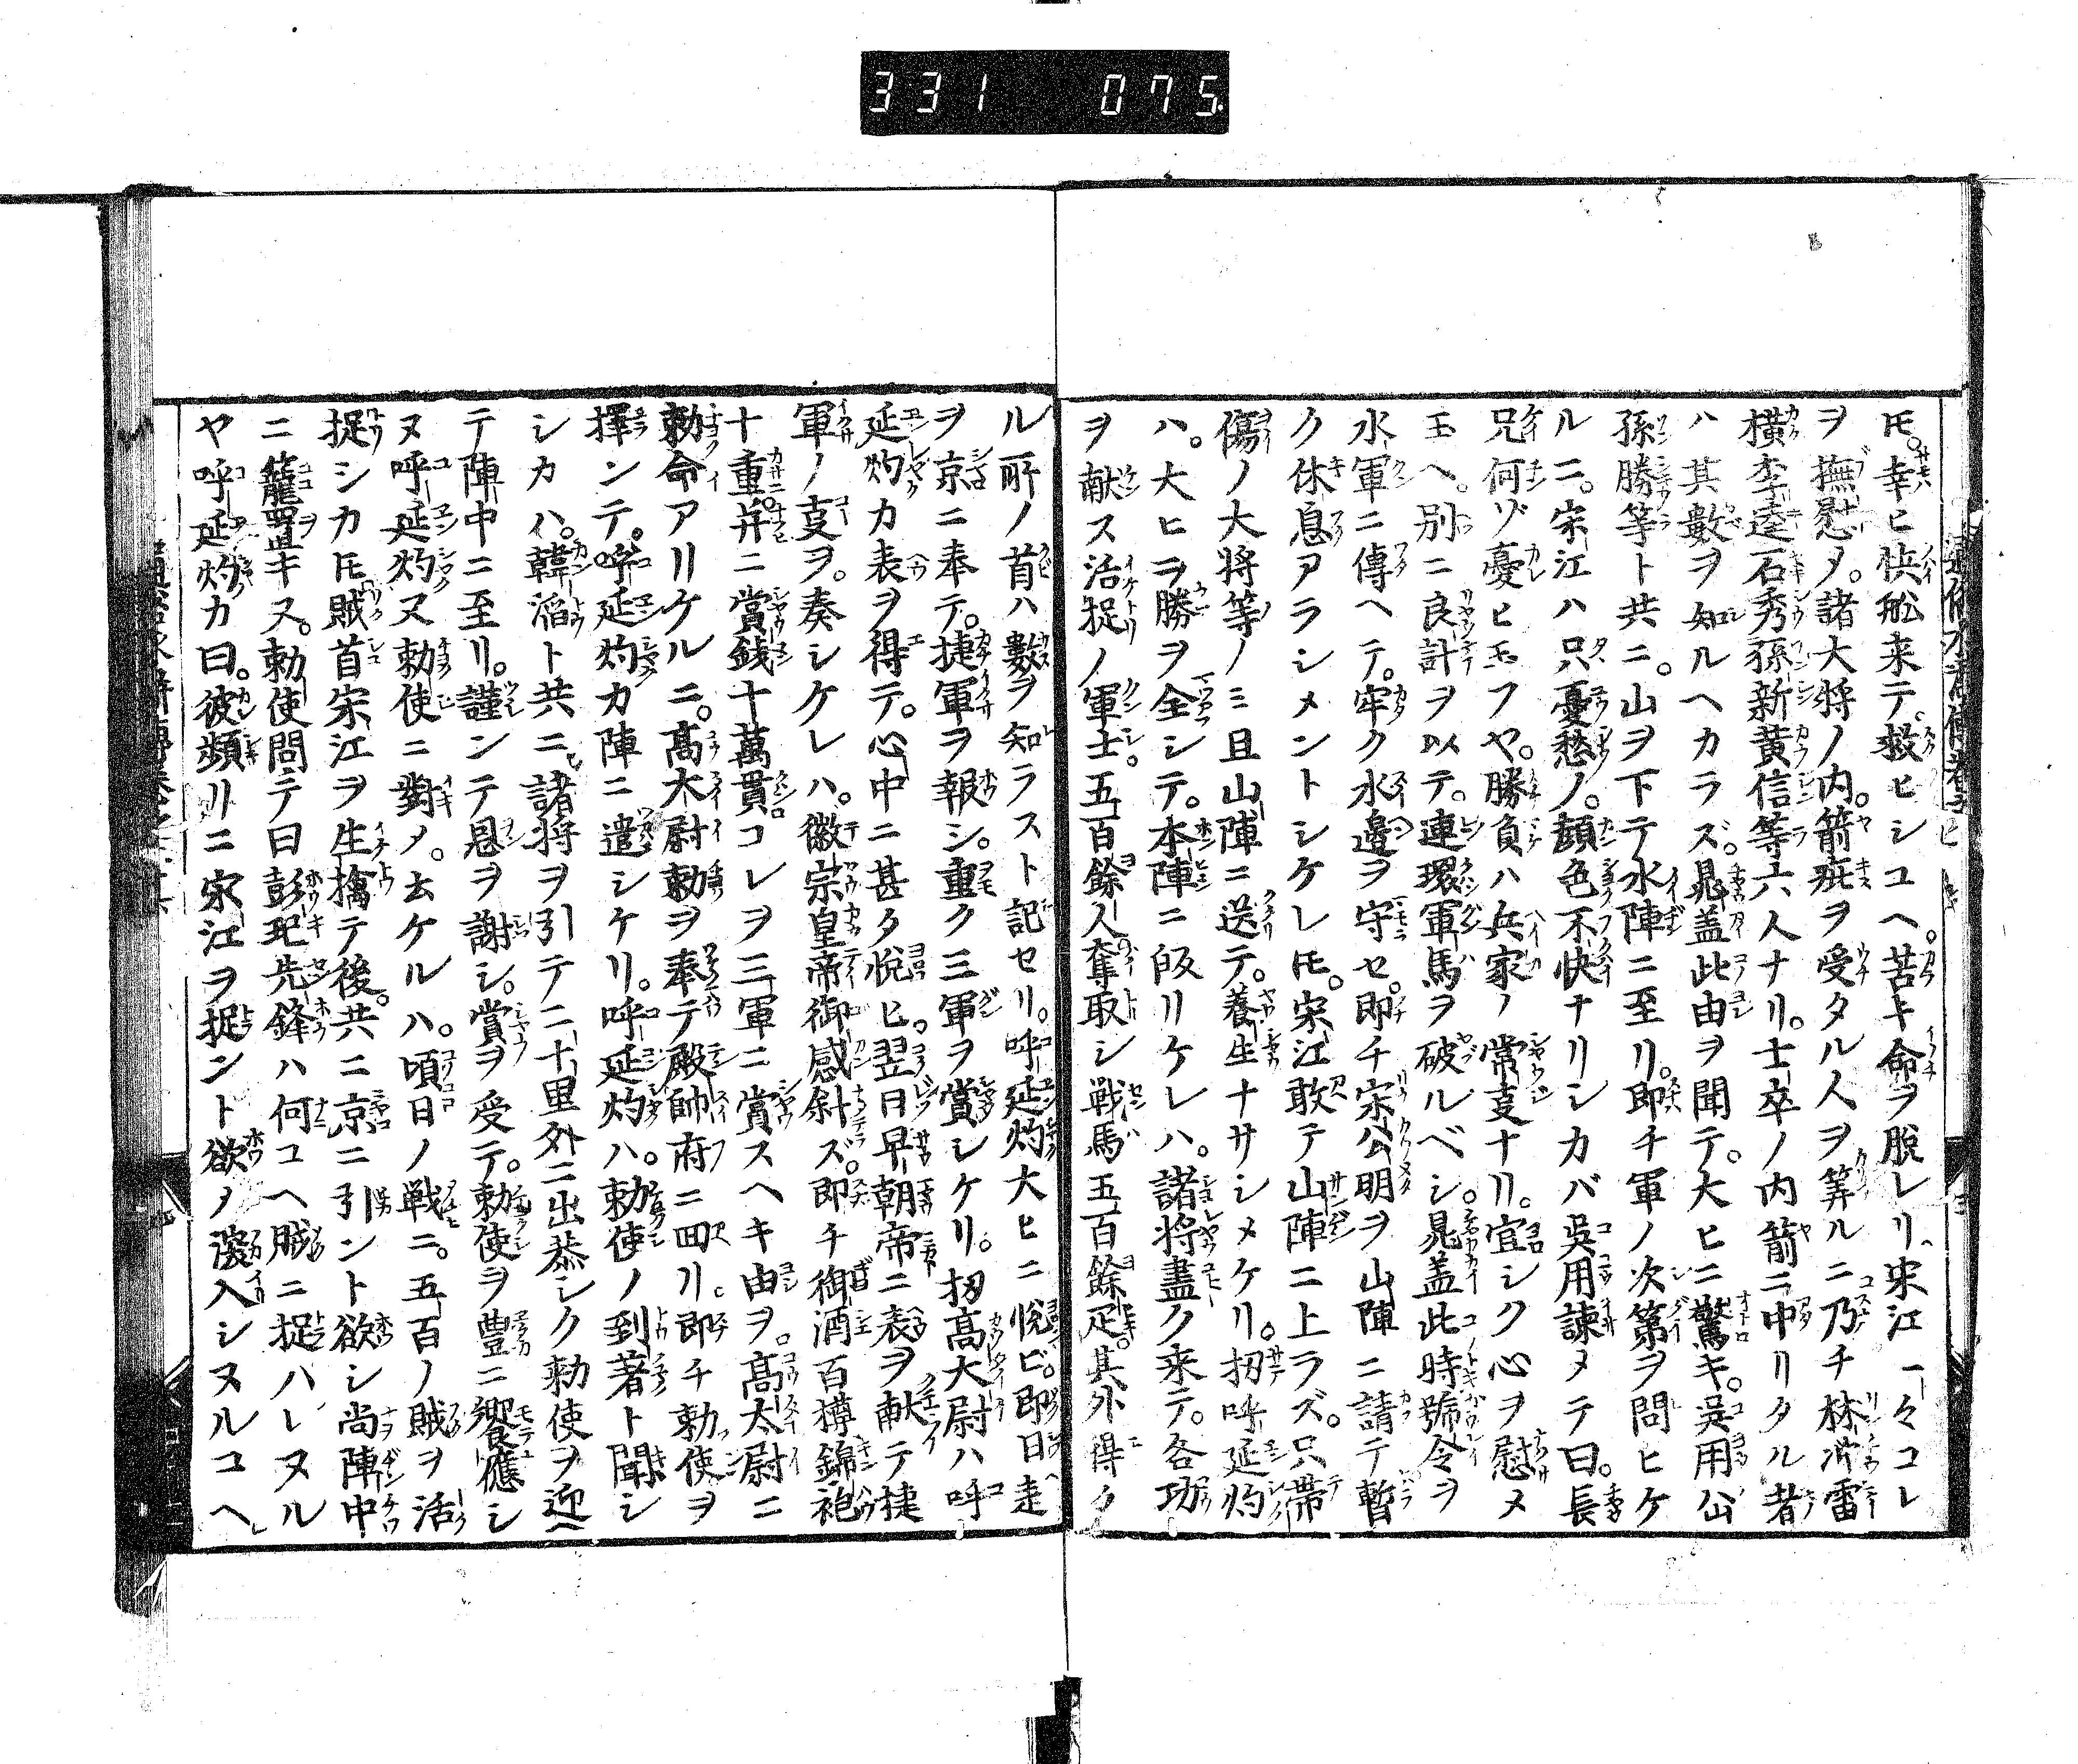 331 075
モ。幸ヒ快舩来テ。救ヒシユヘ。苦キ命ヲ脱レリ、宋江一々コレ
ヲ撫慰メ。諸大将ノ内。箭疵ヲ受タル人ヲ筭ルニ乃チ林冲雷
横李逵石秀孫新黄信等六人ナリ。士卒ノ内箭ニ中リタル者
ハ其數ヲ知ルヘカラズ。晁盖此由ヲ聞テ。大ヒニ驚キ。呉用公
孫勝等ト共ニ。山ヲ下テ水陣ニ至リ。即チ軍ノ次第ヲ問ヒケ
ルニ。宋江ハ只憂愁ノ。顔色不快ナリシカバ呉用諫メテ曰。長
兄何ゾ憂ヒ玉フヤ。勝負ハ兵家ノ常叓ナリ。宜シク心ヲ慰メ
玉ヘ。別ニ良計ヲ以テ。連環軍馬ヲ破ルベシ。晁盖此時號令ヲ
水軍ニ傳ヘテ。牢ク水邉ヲ守セ。即チ宋公明ヲ山陣ニ請テ暫
ク休息アラシメントシケレ𪜈。宋江敢テ山陣ニ上ラズ。只帶
傷ノ大将等ノミ且山陣ニ送テ。養生ナサシメケリ。扨呼延灼
ハ。大ヒヲ勝ヲ全シテ。本陣ニ皈リケレハ。諸将盡ク来テ。各功
ヲ献ス活捉ノ軍士。五百餘人奪取シ戦馬五百餘疋。其外得タ
ル所ノ首ハ數ヲ知ラスト記セリ。呼延灼大ヒニ悦ビ。即日走
ヲ京ニ奉テ。捷軍ヲ報シ。重ク三軍ヲ賞シケリ。扨高大尉ハ呼
延灼カ表ヲ得テ。心中ニ甚タ悦ヒ。翌日早朝帝ニ表ヲ献テ捷
軍ノ叓ヲ。奏シケレハ。徽宗皇帝御感斜ズ。即チ御酒百樽錦袍
十重。并ニ賞銭十萬貫コレヲ三軍ニ賞スヘキ由ヲ。高太尉ニ
勅命アリケルニ。高大尉勅ヲ奉テ殿帥府ニ囬リ、即チ勅使ヲ
擇ンテ。呼延灼カ陣ニ遣シケリ。呼延灼ハ。勅使ノ到著ト聞シ
シカハ。韓滔ト共ニ諸将ヲ引テ二十里外ニ出恭シク勅使ヲ迎ヘ
テ陣中ニ至リ。謹ンテ恩ヲ謝シ。賞ヲ受テ。勅使ヲ豊ニ饗應シ
ヌ呼延灼又勅使ニ對メ。去ケルハ。頃日ノ戦ニ。五百ノ賊ヲ活
捉シカ𪜈賊首宋江ヲ生擒テ後。共ニ京ニ引ント欲シ尚陣中
ニ籠置キヌ。勅使問テ曰彭玘先鋒ハ何ユヘ賊ニ捉ハレヌル
ヤ呼延灼カ曰。彼頻リニ宋江ヲ捉ント欲ノ深入シヌルユヘ